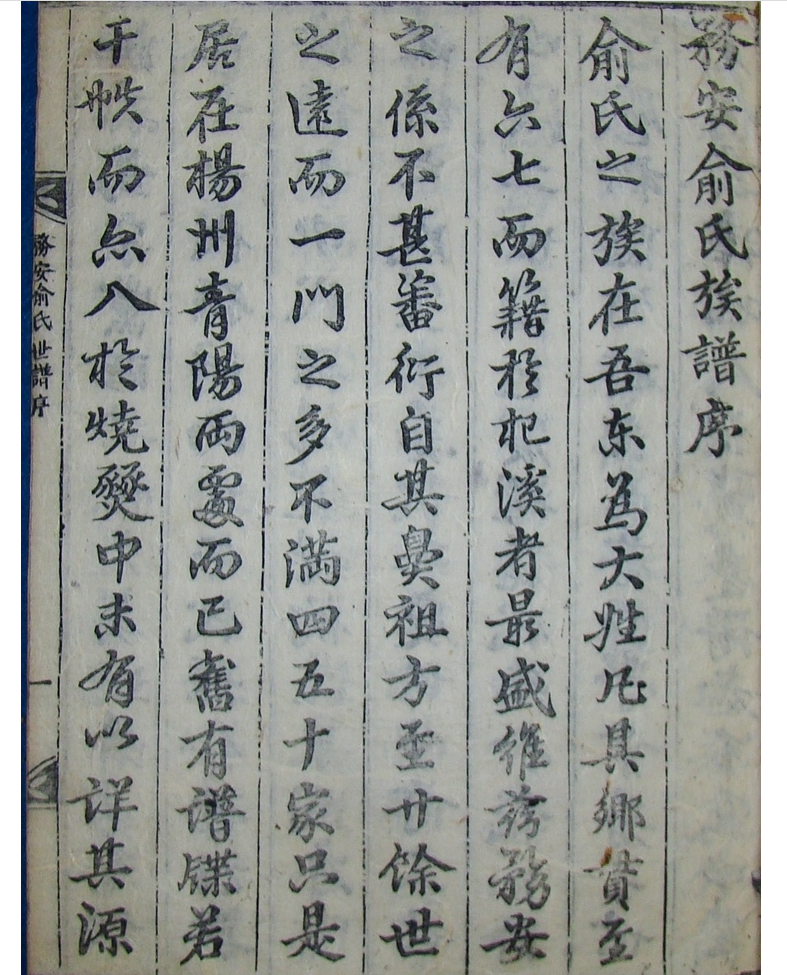 務安俞氏族譜序
俞氏之族在吾东為大姓凡具鄉貫至
有六七而籍於杞溪者最盛維茲務安
之係不甚蕃衍自其鼻祖方至廿餘世
之遠而一門之多不滿四五十家只是
居在楊州青陽兩處而已舊有譜牒若
干帙而亦入於燒燹中未有以詳其源
務安俞氏世譜序
一